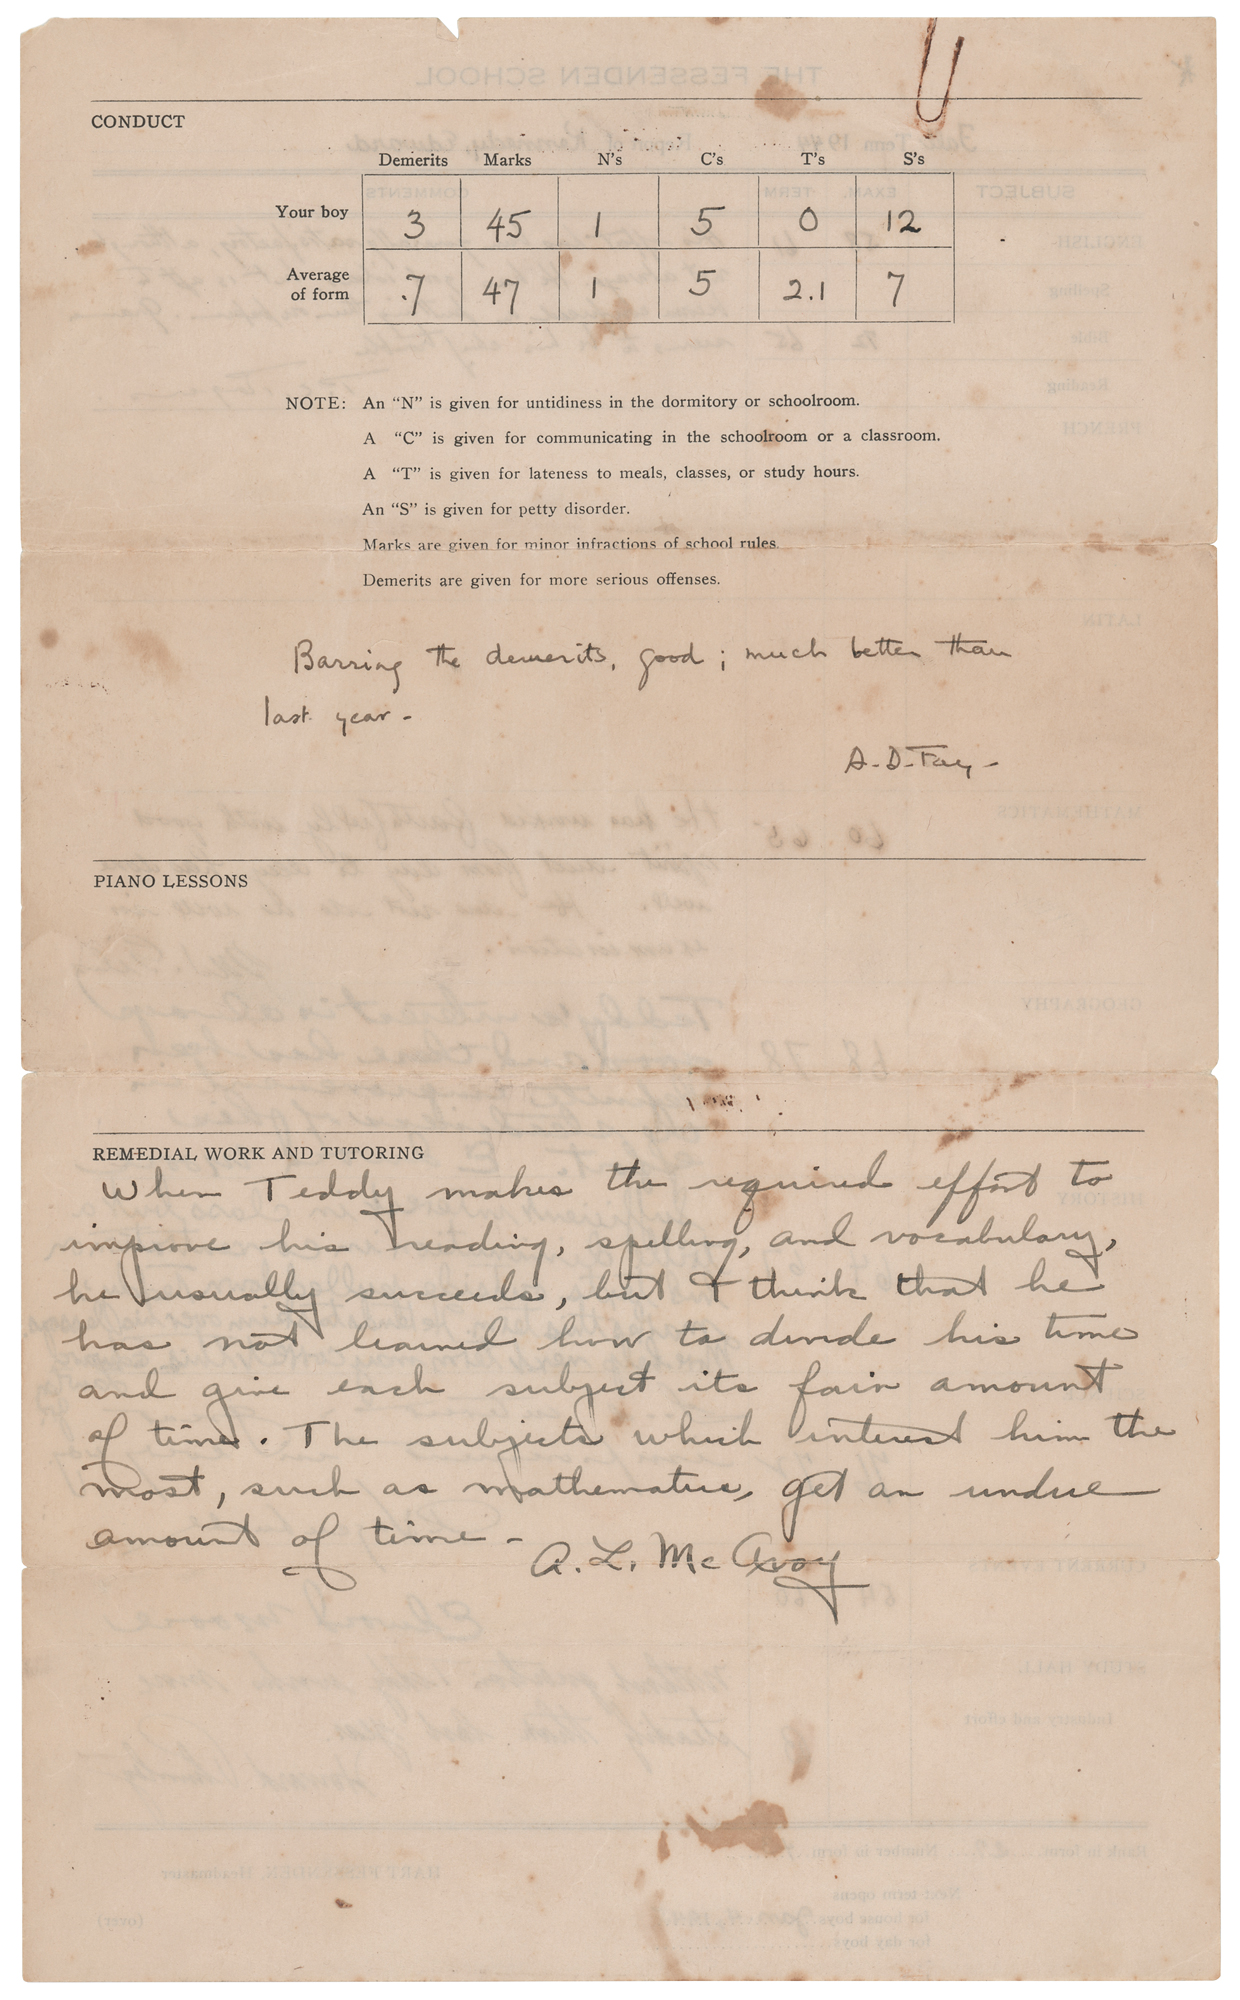 CONDUCT
Demerits Marks N's C's T's S's
Your boy 3 45 1 5 0 12
Average
of form .7 47 1 5 2.1 7
NOTE: An “N” is given for untidiness in the dormitory or schoolroom.
A “C” is given for communicating in the schoolroom or a classroom.
A “T” is given for lateness to meals, classes, or study hours.
An “S” is given for petty disorder.
Marks are given for minor infractions of school rules.
Demerits are given for more serious offenses.
Barring the demerits, good; much better than
last year -
A. D. Fay -
PIANO LESSONS
REMEDIAL WORK AND TUTORING
When Teddy makes the required effort to
improve his reading, spelling, and vocabulary,
he usually succeeds, but I think that he
has not learned how to divide his time
and give each subject its fair amount
of time. The subjects which interest him the
most, such as mathematics, get an undue
amount of time -
A. L. McAvoy